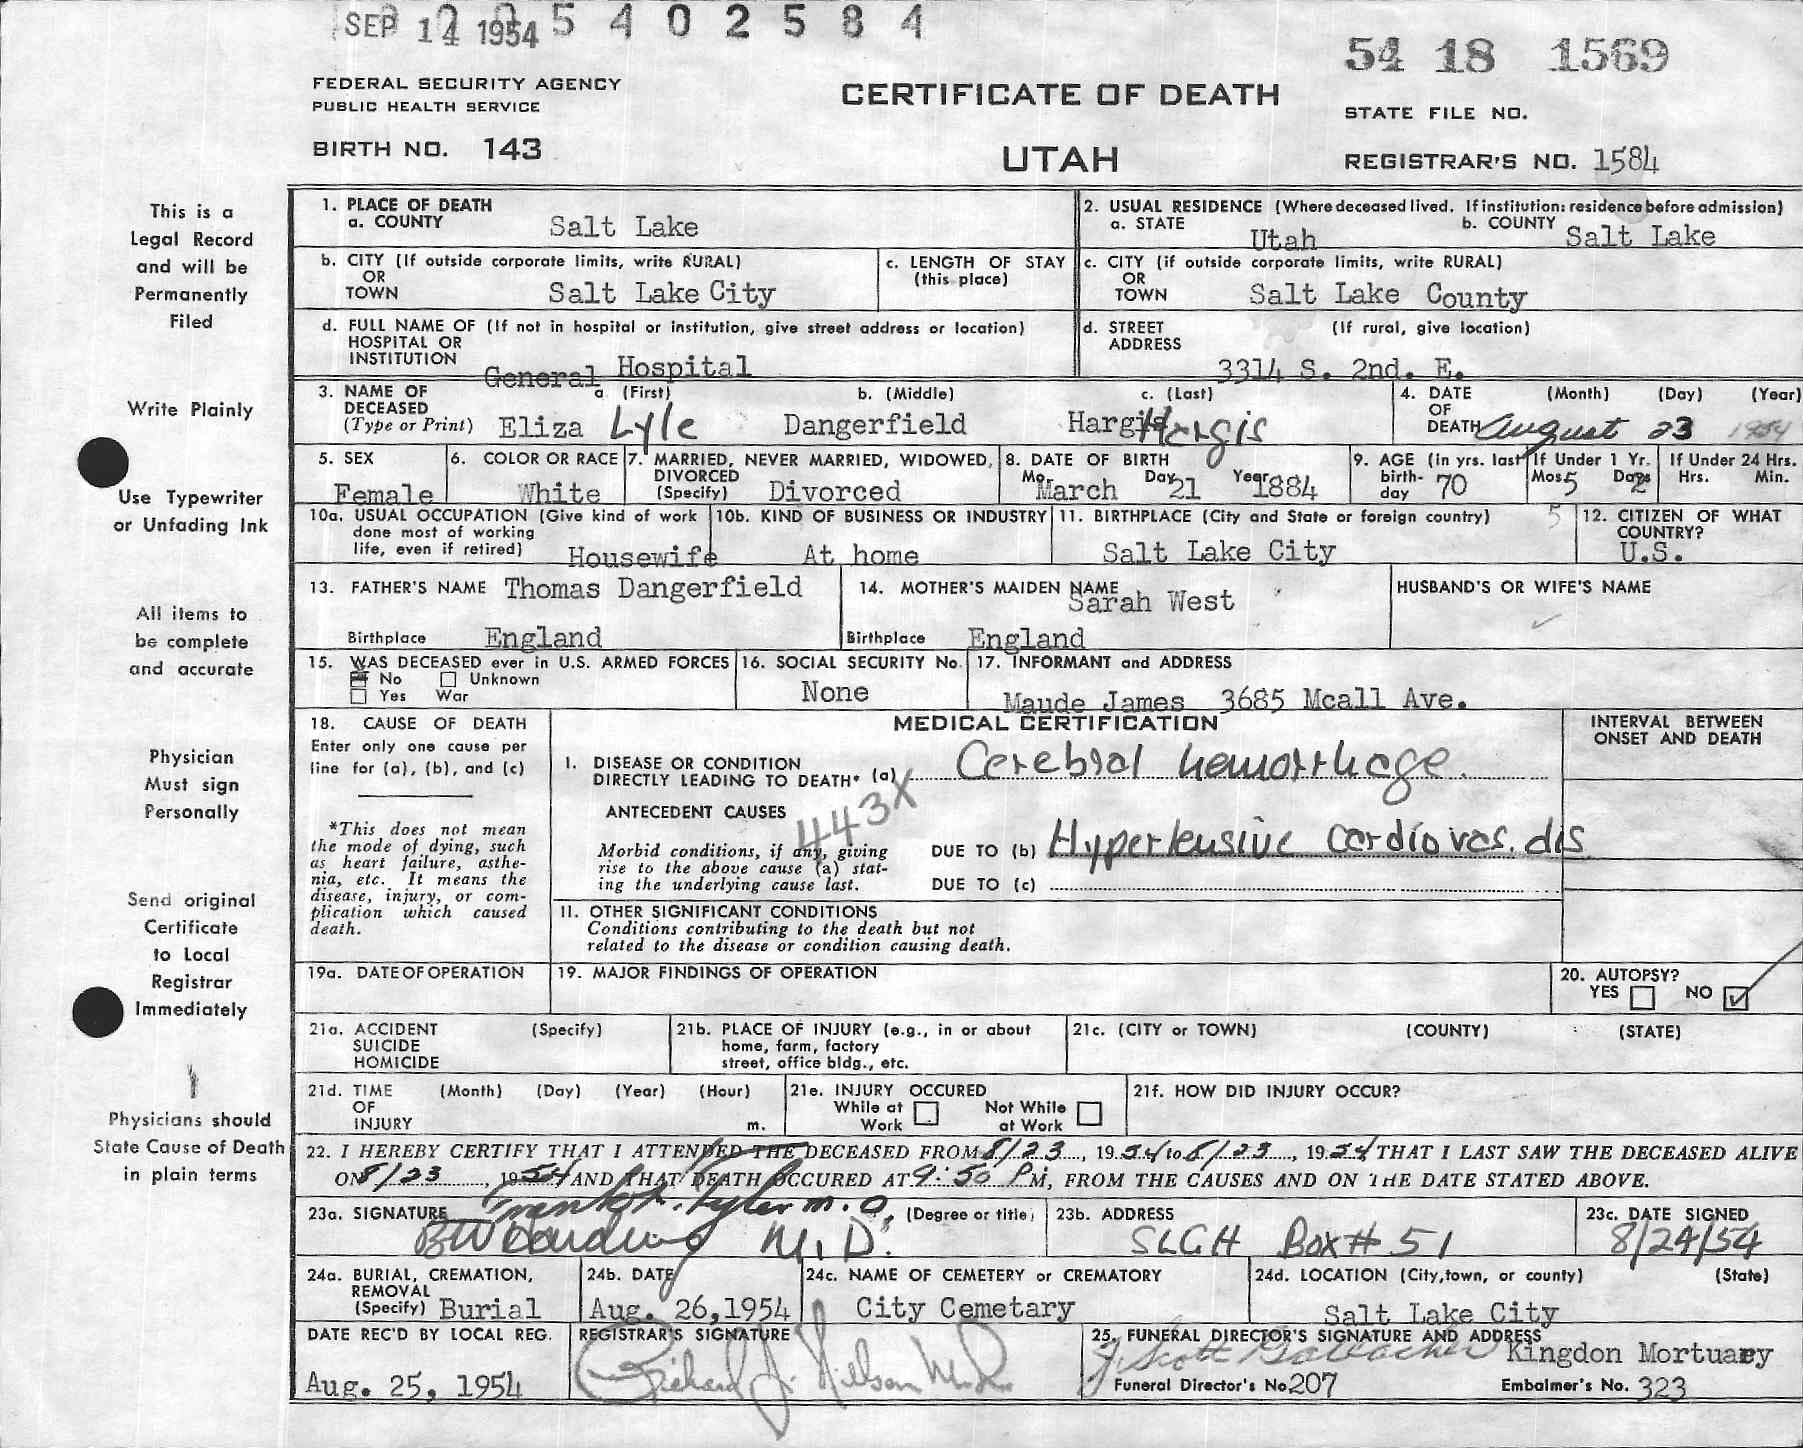 SEP 14 1954 5 4 0 2 5 8 4
54 18 1569
FEDERAL SECURITY AGENCY
PUBLIC HEALTH SERVICE
CERTIFICATE OF DEATH
STATE FILE NO.
BIRTH NO. 143
UTAH
REGISTRAR'S NO. 1584
This is a
Legal Record
and will be
Permanently
Filed
Write Plainly
Use Typewriter
or Unfading Ink
All items to
be complete
and accurate
Physician
Must sign
Personally
Send original
Certificate
to Local
Registrar
Immediately
Physicians should
State Cause of Death
in plain terms
1. PLACE OF DEATH
a. COUNTY Salt Lake
2. USUAL RESIDENCE (Where deceased lived. If institution: residence before admission)
a. STATE Utah b. COUNTY Salt Lake
b. CITY (If outside corporate limits, write RURAL)
OR
TOWN Salt Lake City
c. LENGTH OF STAY
(this place)
c. CITY (if outside corporate limits, write RURAL)
OR
TOWN Salt Lake County
d. FULL NAME OF (If not in hospital or institution, give street address or location)
HOSPITAL OR
INSTITUTION General Hospital
d. STREET (If rural, give location)
ADDRESS 3314 S. 2nd. E.
3. NAME OF a (First) b. (Middle) c. (Last)
DECEASED
(Type or Print) Eliza Lyle Dangerfield Hargis Hargis
4. DATE (Month) (Day) (Year)
OF
DEATH August 23 1954
5. SEX
Female
6. COLOR OR RACE
White
7. MARRIED, NEVER MARRIED, WIDOWED,
DIVORCED
(Specify) Divorced
8. DATE OF BIRTH
Mo. March Day 21 Year 1884
9. AGE (in yrs. last
birth-
day 70
If Under 1 Yr.
Mos 5 Days 2
If Under 24 Hrs.
Hrs. Min.
10a. USUAL OCCUPATION (Give kind of work
done most of working
life, even if retired) Housewife
10b. KIND OF BUSINESS OR INDUSTRY
At home
11. BIRTHPLACE (City and State or foreign country) 5
Salt Lake City
12. CITIZEN OF WHAT
COUNTRY?
U.S.
13. FATHER'S NAME Thomas Dangerfield
Birthplace England
14. MOTHER'S MAIDEN NAME
Sarah West
Birthplace England
HUSBAND'S OR WIFE'S NAME
15. WAS DECEASED ever in U.S. ARMED FORCES
No Unknown
Yes War
16. SOCIAL SECURITY No.
None
17. INFORMANT and ADDRESS
Maude James 3685 Mcall Ave.
18. CAUSE OF DEATH
Enter only one cause per
line for (a), (b), and (c)
*This does not mean
the mode of dying, such
as heart failure, asthe-
nia, etc. It means the
disease, injury, or com-
plication which caused
death.
MEDICAL CERTIFICATION
INTERVAL BETWEEN
ONSET AND DEATH
I. DISEASE OR CONDITION
DIRECTLY LEADING TO DEATH* (a) Cerebral hemorrhage.
ANTECEDENT CAUSES
443X
Morbid conditions, if any, giving
rise to the above cause (a) stat-
ing the underlying cause last.
DUE TO (b) Hypertensive cardiovas. dis
DUE TO (c)
II. OTHER SIGNIFICANT CONDITIONS
Conditions contributing to the death but not
related to the disease or condition causing death.
19a. DATE OF OPERATION
19. MAJOR FINDINGS OF OPERATION
20. AUTOPSY?
YES NO
21a. ACCIDENT (Specify)
SUICIDE
HOMICIDE
21b. PLACE OF INJURY (e.g., in or about
home, farm, factory
street, office bldg., etc.
21c. (CITY or TOWN) (COUNTY) (STATE)
21d. TIME (Month) (Day) (Year) (Hour)
OF
INJURY m.
21e. INJURY OCCURED
While at Work
Not While at Work
21f. HOW DID INJURY OCCUR?
22. I HEREBY CERTIFY THAT I ATTENDED THE DECEASED FROM 8/23, 1954 to 8/23, 1954 THAT I LAST SAW THE DECEASED ALIVE
ON 8/23, 1954 AND THAT DEATH OCCURED AT 9:50 PM, FROM THE CAUSES AND ON THE DATE STATED ABOVE.
23a. SIGNATURE Frank R. Tyler M.D. (Degree or title)
M.D.
23b. ADDRESS
SLGH Box # 51
23c. DATE SIGNED
8/24/54
24a. BURIAL, CREMATION,
REMOVAL
(Specify) Burial
24b. DATE
Aug. 26, 1954
24c. NAME OF CEMETERY or CREMATORY
City Cemetary
24d. LOCATION (City, town, or county) (State)
Salt Lake City
DATE REC'D BY LOCAL REG.
Aug. 25, 1954
REGISTRAR'S SIGNATURE
Richard J. Nelson
25. FUNERAL DIRECTOR'S SIGNATURE AND ADDRESS
J. Scott Gallacher Kingdon Mortuary
Funeral Director's No 207 Embalmer's No. 323